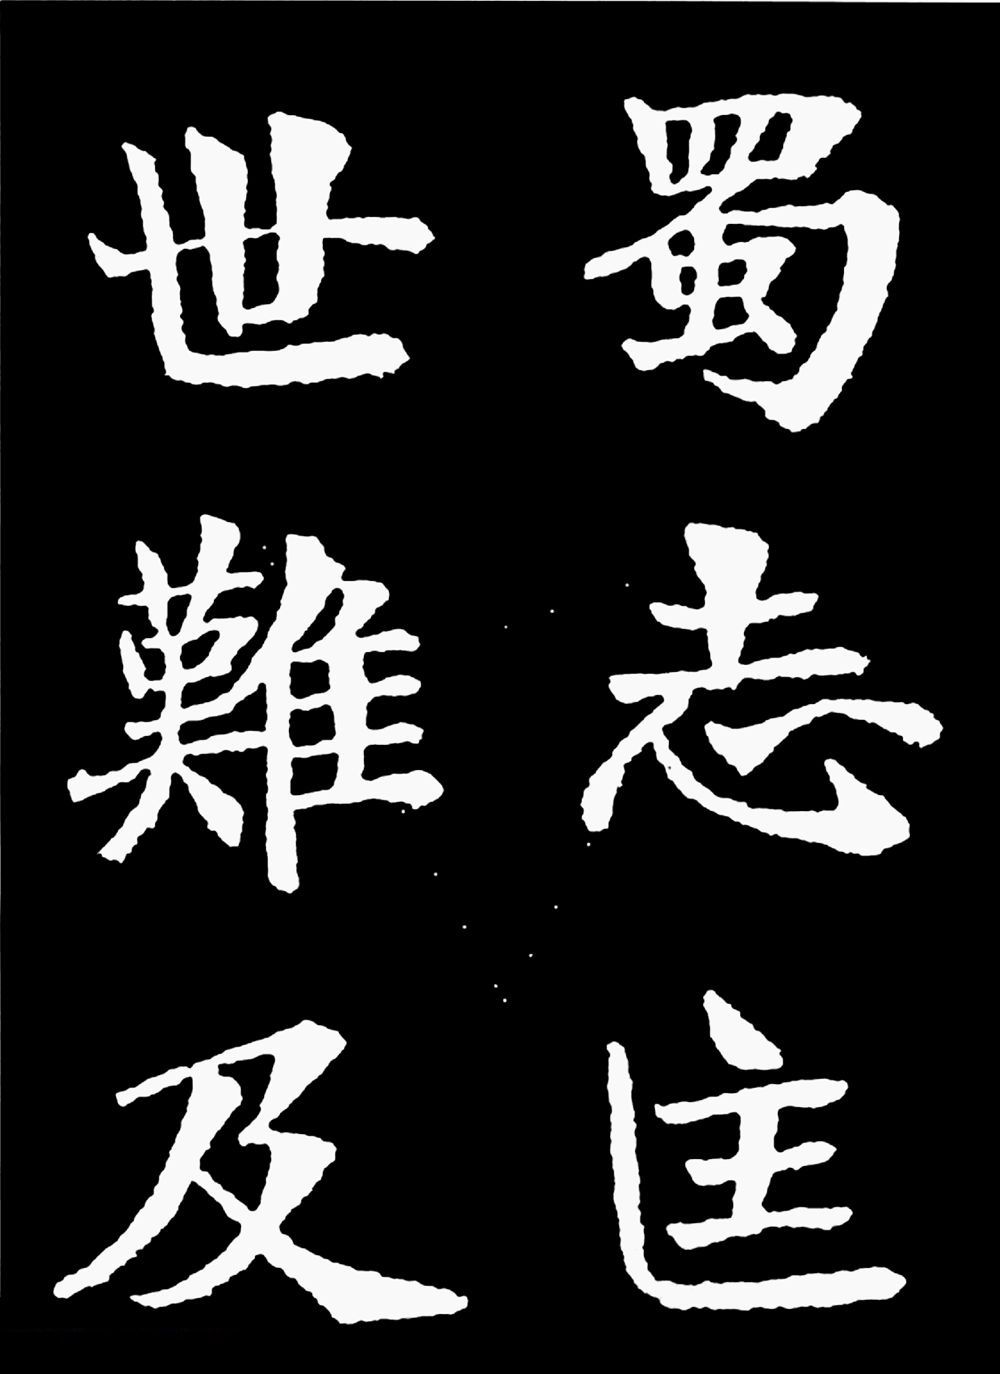 蜀志匡
世難及